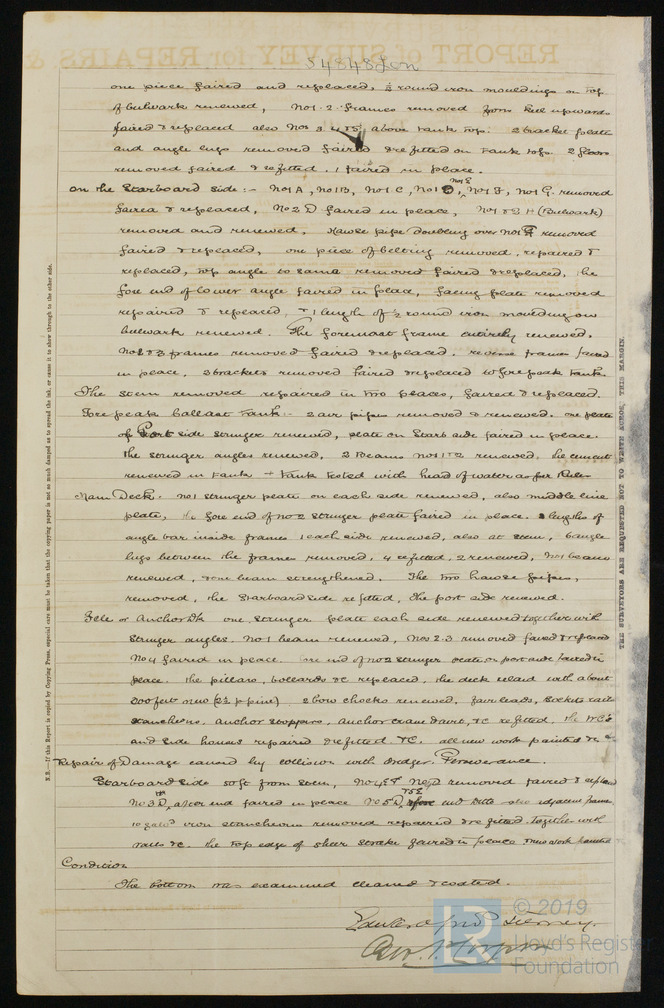 REPORT of SURVEY for REPAIRS &
54848 Lon
one piece faired and replaced, ½ round iron mouldings on top
of bulwark renewed, Nos 1. 2. frames removed from keel upwards
faired & replaced also Nos 3. 4 & 5 above tank top. 2 bracket plate
and angle lugs removed faired & refitted on tank top. 2 floors
removed faired & refitted. 1 faired in place.
On the Starboard side :- No 1 A, No 1 B, No 1 C, No 1 D, No 1 E, No 1 F, No 1 G. removed
faired & replaced, No 2 D faired in place, No 1 & 2 H (Bulwark)
removed and renewed, Hawse pipe doubling over No 1 removed
faired & replaced, one piece of belting removed, repaired &
replaced, top angle to same removed faired & replaced, the
fore end of lower angle faired in place, facing plate removed
repaired & replaced, & 1 length of ½ round iron moulding on
bulwark renewed. The foremost frame entirely renewed.
No 2 & 3 frames removed faired & replaced. reverse frames faired
in place, 3 brackets removed faired & replaced to fore peak tank.
The stem removed repaired in two places, faired & replaced.
Fore peak ballast tank :- 2 air pipes removed & renewed. one plate
of Port side stringer renewed, plate on Starb side faired in place.
the stringer angles renewed, 2 Beams Nos 1 & 2 renewed, the cement
renewed in tank & tank tested with head of water as per Rules
Main Deck :- No 1 stringer plate on each side renewed, also middle line
plate, the fore end of No 2 stringer plate faired in place. lengths of
angle bar inside frames 1 each side renewed, also at stem, 6 angle
lugs between the frames removed, 4 refitted, 2 renewed, No 1 beam
renewed, & one beam strengthened. The two hawse pipes,
removed, the Starboard side refitted, the port side renewed.
Fcle or Anchor Dk one stringer plate each side renewed together with
stringer angles. No 1 beam renewed, Nos 2. 3 removed faired & replaced
No 4 faired in place. fore end of No 2 stringer plate on port side faired in
place. the pillars, bollards &c replaced, the deck relaid with about
300 feet new (2½ p pine) 2 bow chocks renewed, fair leads, sockets rail
stanchions, anchor stoppers, anchor crane davit, &c refitted. the W.C's
and side houses repaired & refitted &c. all new work painted &c
Repair of Damage caused by collision with dredger Perseverance.
Starboard side 50 ft from stem, removed faired & replaced
No 3 D, after end faired in place No 5 D, fore end ditto also adjacent frame
10 galvd iron stanchions removed repaired & refitted together with
rails &c. the top edge of sheer strake faired in place new work painted
Condition
The bottom was examined cleaned & coated.
N.B.—If this Report is copied by Copying Press, especial care must be taken that the copying paper is not so much damped as to spread the ink, or cause it to show through to the other side.
THE SURVEYORS ARE REQUESTED NOT TO WRITE ACROSS THIS MARGIN.
© 2019
Lloyd's Register
Foundation